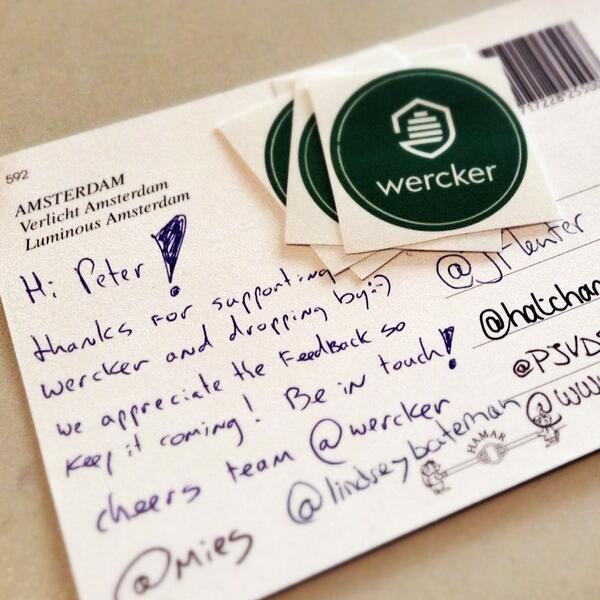 592
AMSTERDAM
Verlicht Amsterdam
Luminous Amsterdam
wercker
Hi Peter!
thanks for supporting
wercker and dropping by:-)
we appreciate the feedback so
keep it coming! Be in touch!
cheers team @wercker
@mies @lindseybateman
@hatchan
@PJVD
@ww
HAMAR